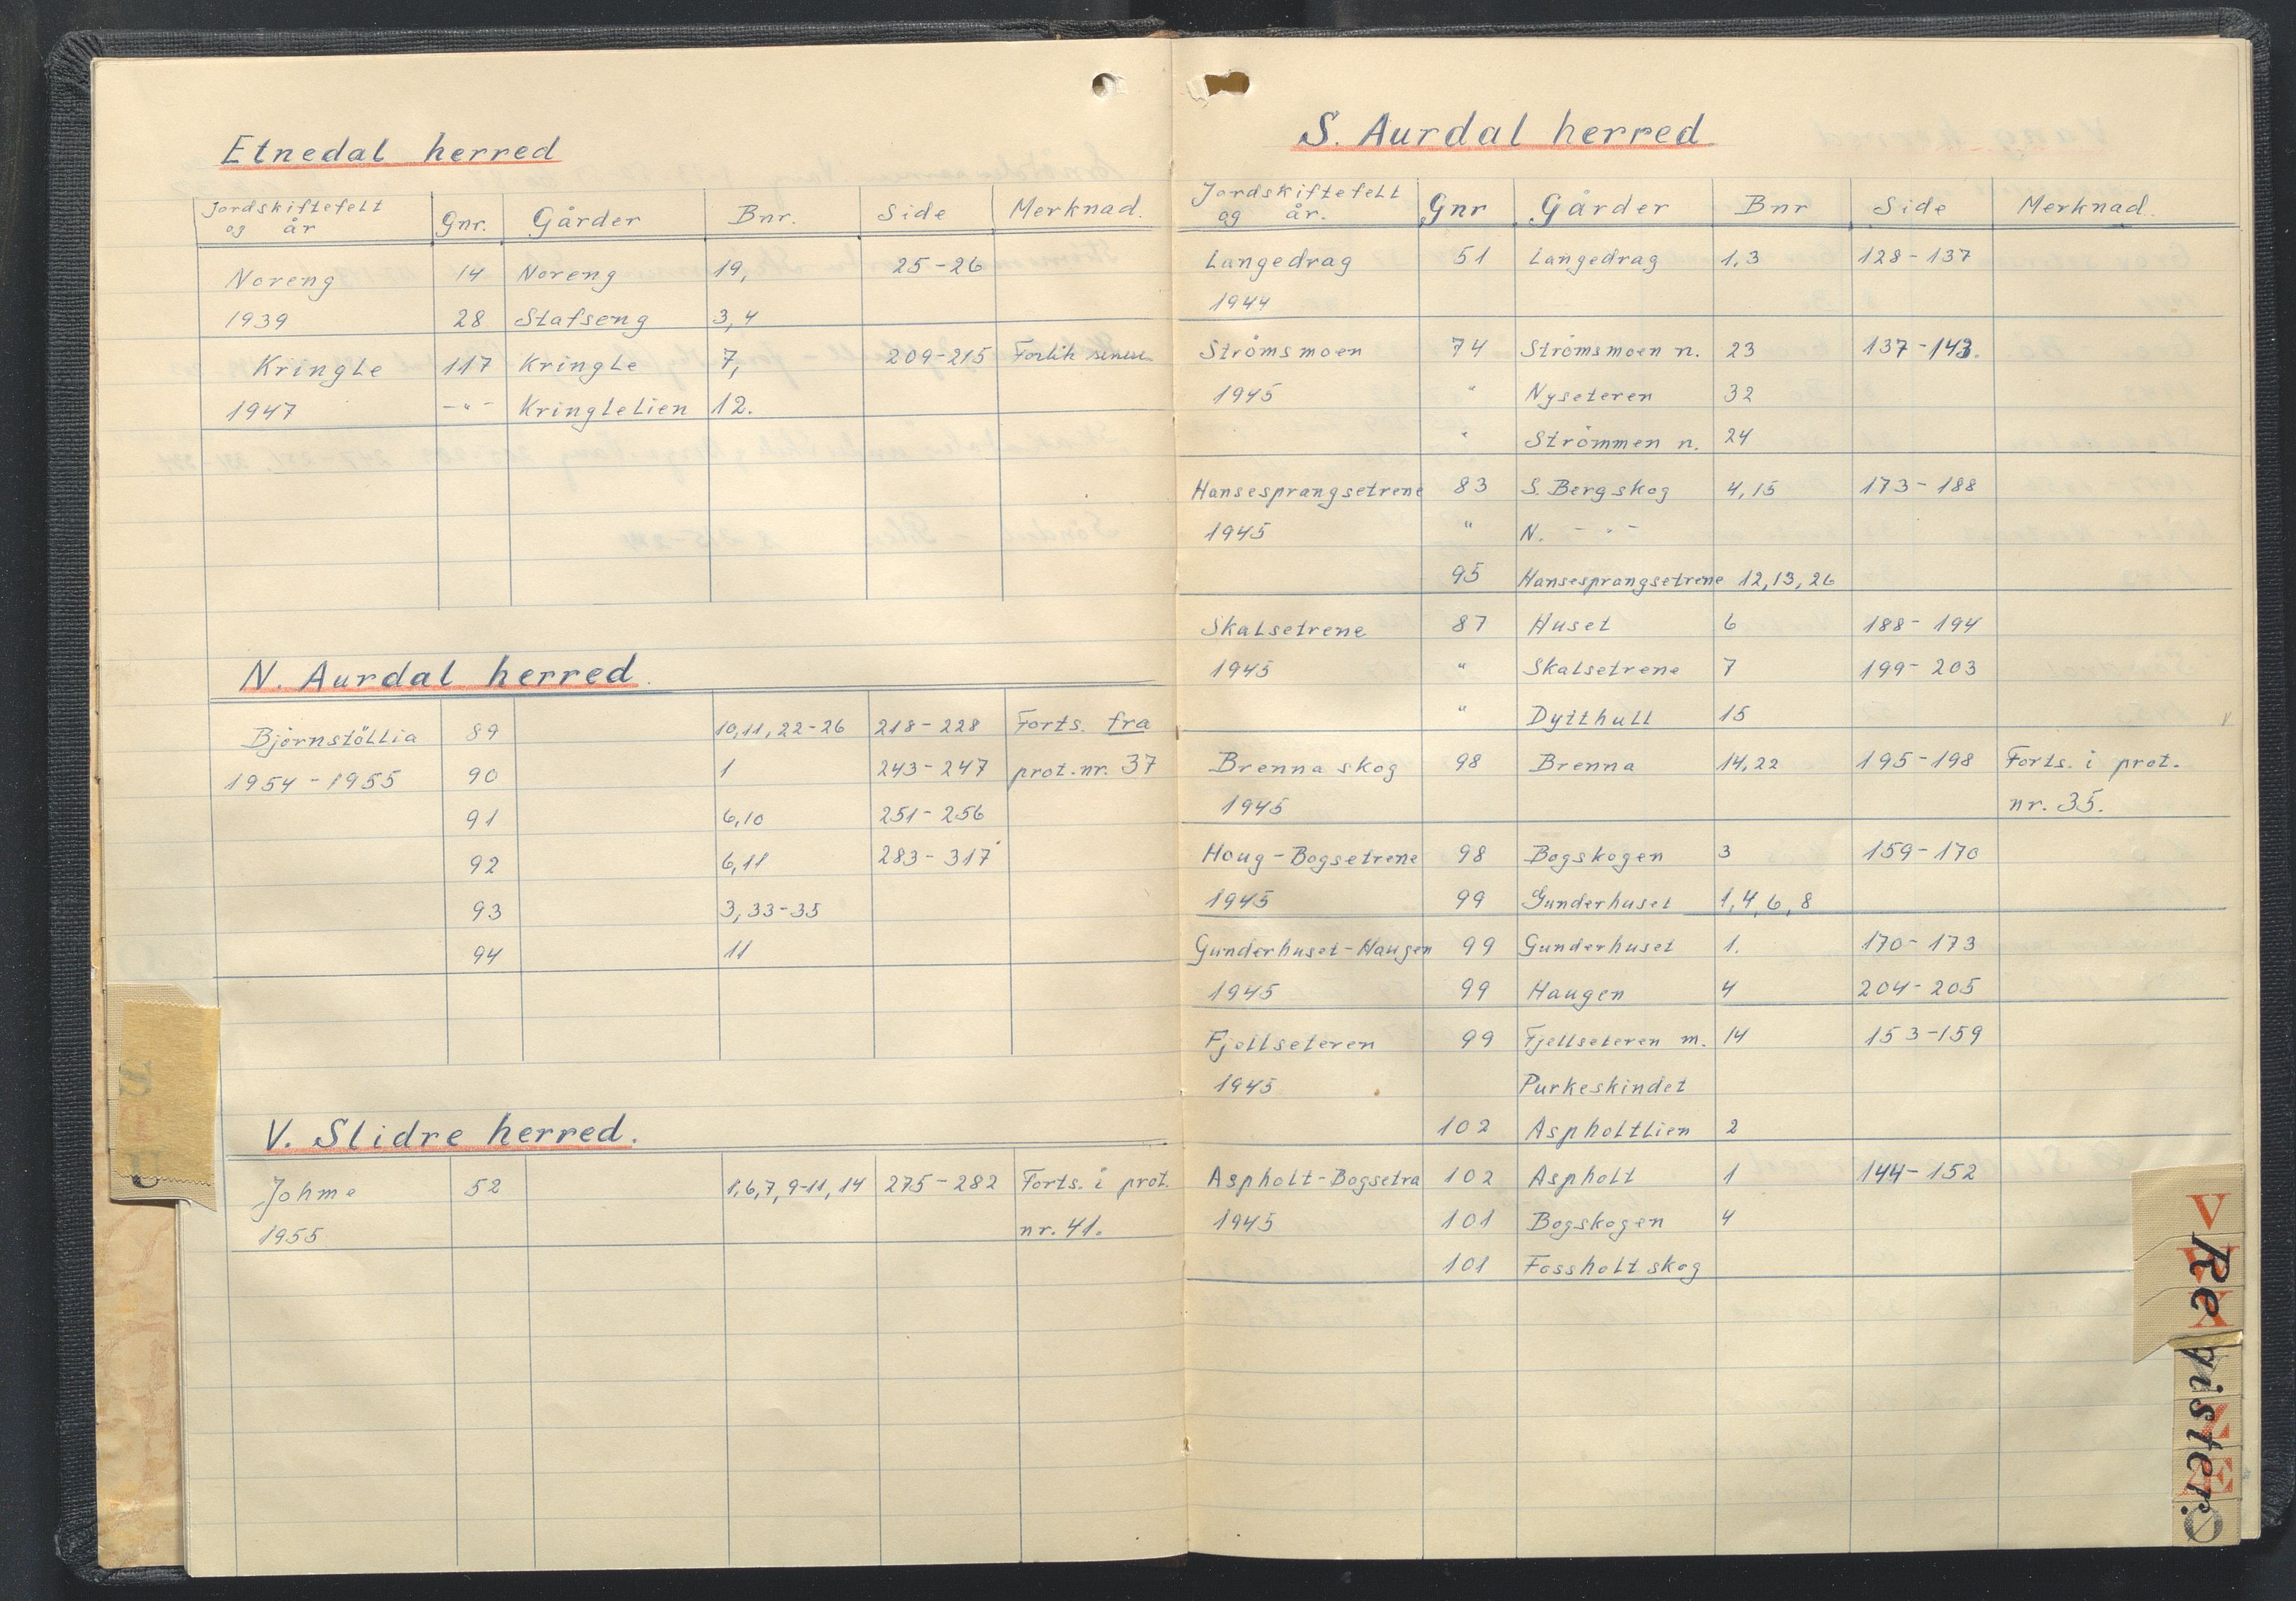 Etnedal herred
Jordskiftefelt og år Gnr. Gårder Bnr. Side Merknad.
Noreng 14 Noreng 19, 25-26
1939 28 Stafseng 3,4
Kringle 117 Kringle 7, 209-215 Forlik
1947 -"- Kringlelien 12.
N. Aurdal herred.
Björnstöllia 89 10,11,22-26 218-228 Forts. fra
1954-1955 90 1 243-247 prot.nr. 37
91 6,10 251-256
92 6,11 283-317
93 3,33-35
94 11
V. Slidre herred.
Johme 52 1,6,7,9-11,14 275-282 Forts. i prot.
1955 nr. 41.
S. Aurdal herred
Jordskiftefelt og år. Gnr Gårder Bnr Side Merknad.
Langedrag 51 Langedrag 1,3 128-137
1944
Strömsmoen 74 Strömsmoen n. 23 137-143.
1945 " Nyseteren 32
" Strömmen n. 24
Hansesprangsetrene 83 S. Bergskog 4,15 173-188
1945 " N. -"-
95 Hansesprangsetrene 12,13,26
Skalsetrene 87 Huset 6 188-194
1945 " Skalsetrene 7 199-203
" Dytthull 15
Brenna skog 98 Brenna 14,22 195-198 Forts. i prot.
1945 nr. 35.
Houg-Bogsetrene 98 Bogskogen 3 159-170
1945 99 Gunderhuset 1,4,6,8
Gunderhuset-Haugen 99 Gunderhuset 1. 170-173
1945 99 Haugen 4 204-205
Fjellseteren 99 Fjellseteren m. 14 153-159
1945 Purkeskindet
102 Aspholtlien 2
Aspholt-Bogsetra 102 Aspholt 1 144-152
1945 101 Bogskogen 4
101 Fossholt skog
Register.